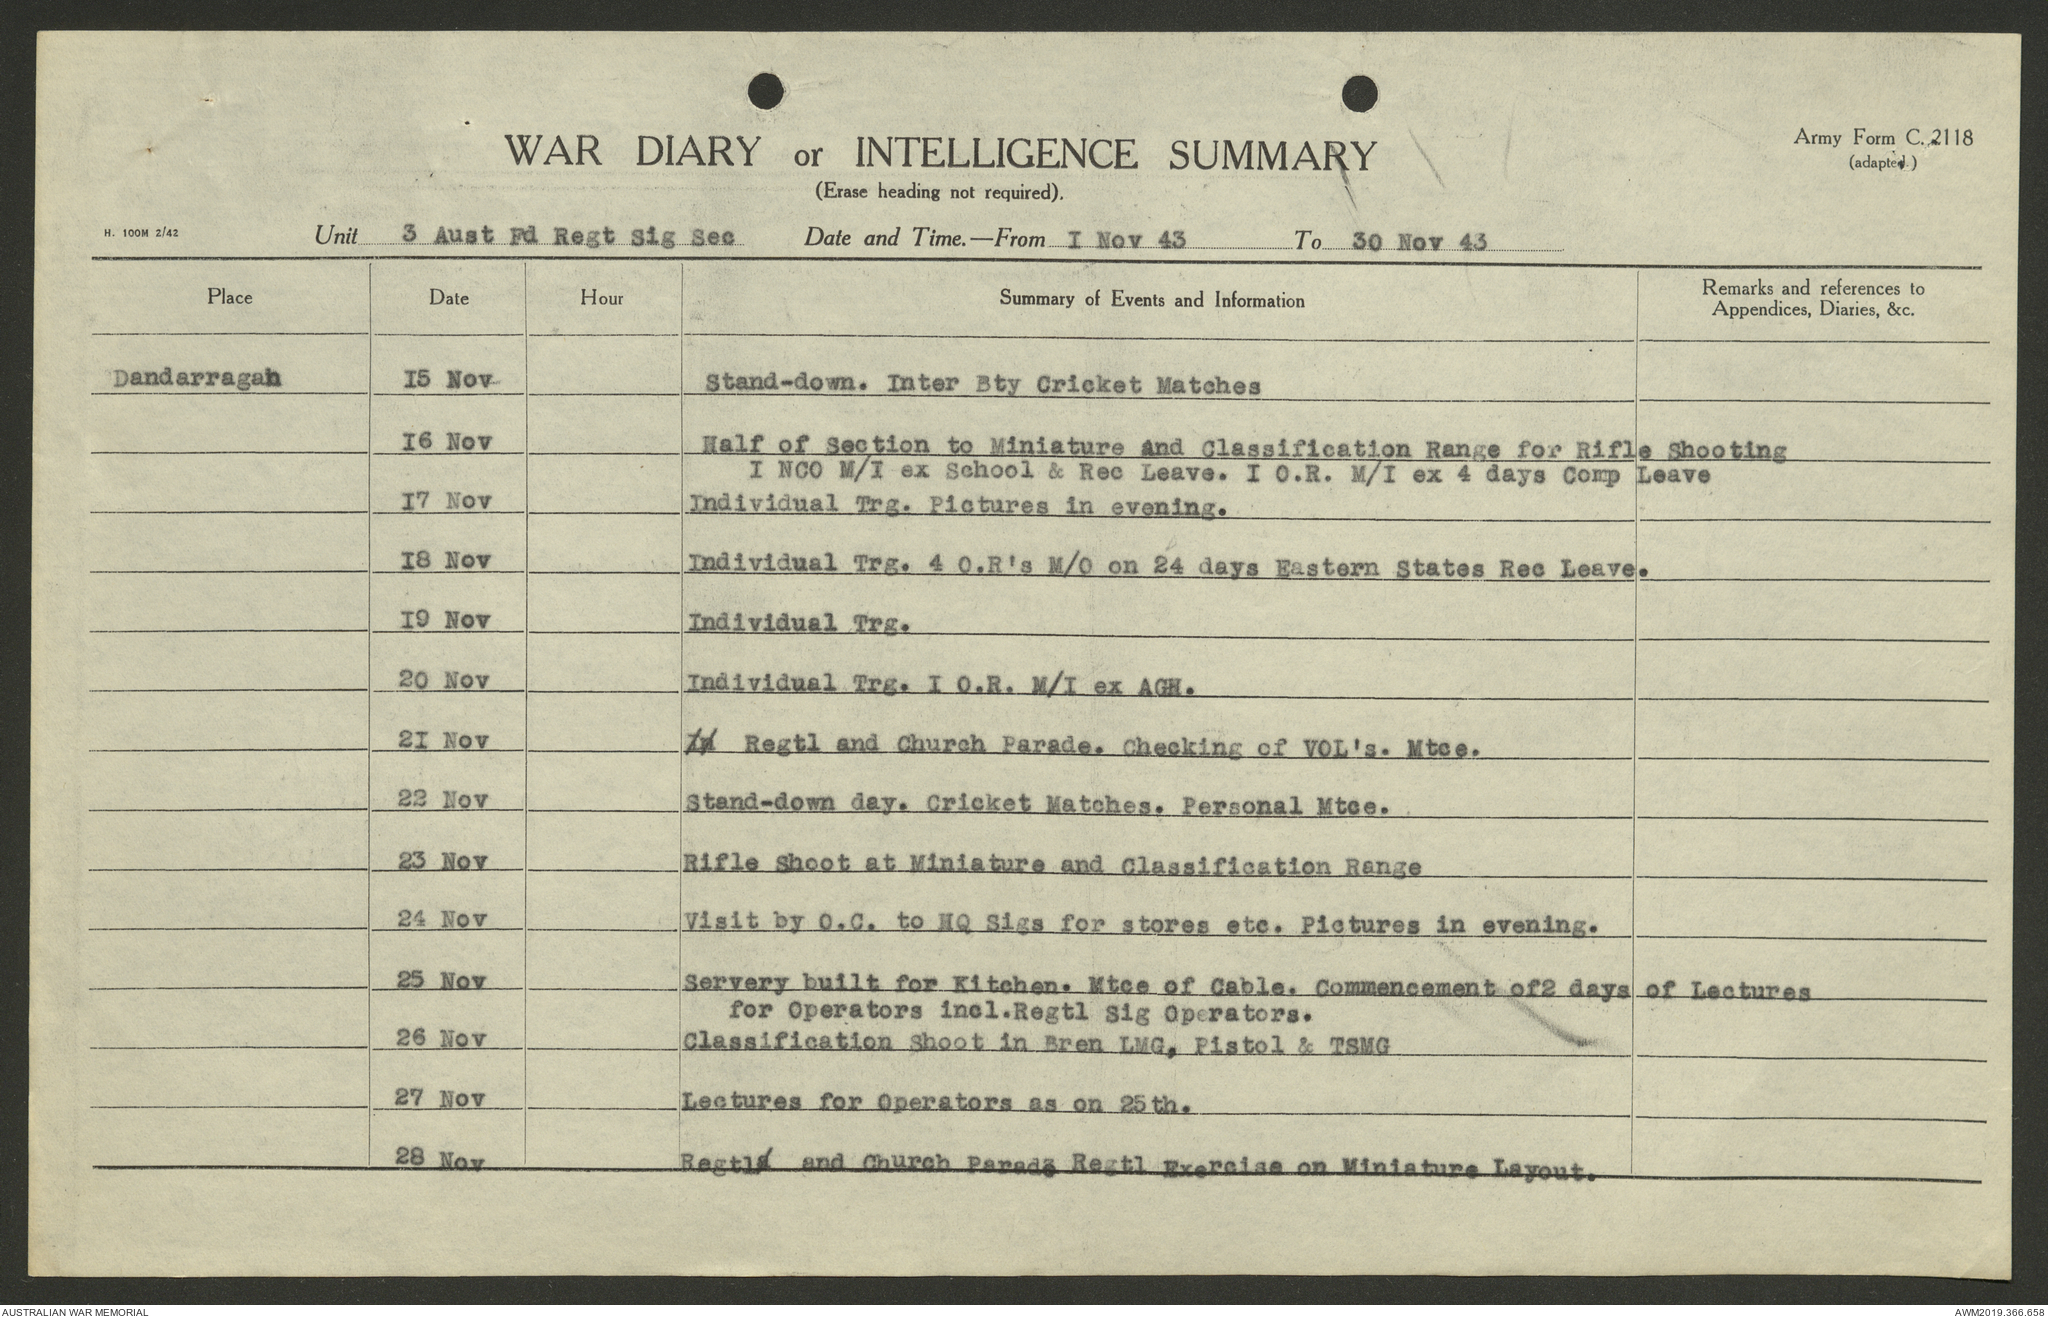 WAR DIARY or INTELLIGENCE SUMMARY
Army Form C. 2118
(adapted.)
(Erase heading not required).
H. 100M 2/42
Unit 3 Aust Fd Regt Sig Sec Date and Time.—From I Nov 43 To 30 Nov 43
Place Date Hour Summary of Events and Information Remarks and references to
Appendices, Diaries, &c.
Dandarragan 15 Nov Stand-down. Inter Bty Cricket Matches
16 Nov Half of Section to Miniature and Classification Range for Rifle Shooting
I NCO M/I ex School & Rec Leave. I O.R. M/I ex 4 days Comp Leave
17 Nov Individual Trg. Pictures in evening.
18 Nov Individual Trg. 4 O.R's M/O on 24 days Eastern States Rec Leave.
19 Nov Individual Trg.
20 Nov Individual Trg. I O.R. M/I ex AGH.
21 Nov In Regtl and Church Parade. Checking of VOL's. Mtce.
22 Nov Stand-down day. Cricket Matches. Personal Mtce.
23 Nov Rifle Shoot at Miniature and Classification Range
24 Nov Visit by O.C. to HQ Sigs for stores etc. Pictures in evening.
25 Nov Servery built for Kitchen. Mtce of Cable. Commencement of2 days of Lectures
for Operators incl.Regtl Sig Operators.
26 Nov Classification Shoot in Bren LMG, Pistol & TSMG
27 Nov Lectures for Operators as on 25th.
28 Nov Regtl and Church Parade Regtl Exercise on Miniature Layout.
AUSTRALIAN WAR MEMORIAL
AWM2019.366.658